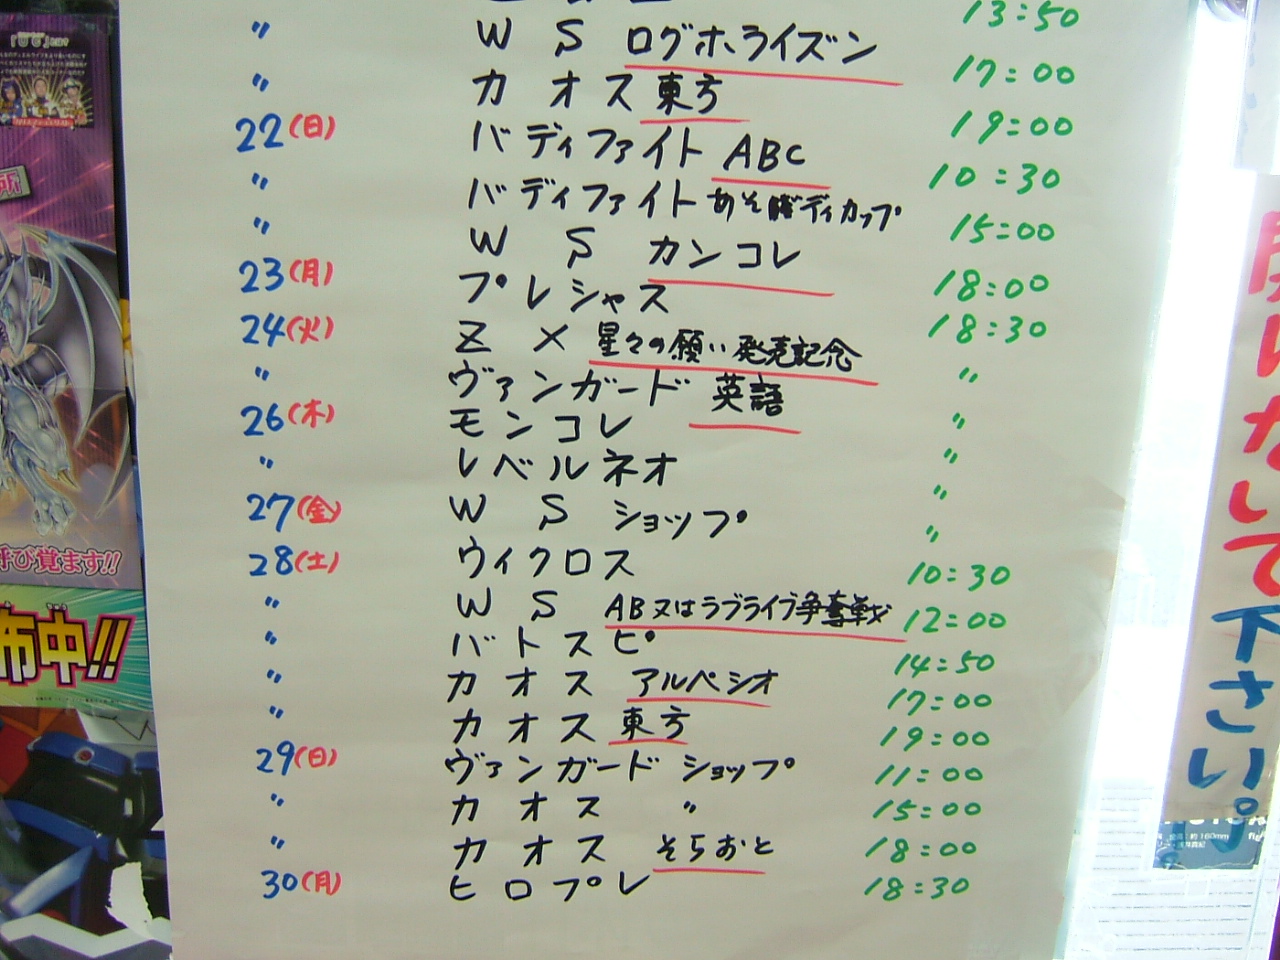 13:50
〃 WS ログホライズン 17:00
〃 カオス 東方 19:00
22(日) バディファイト ABC 10:30
〃 バディファイト あそ バディカップ 15:00
〃 WS カンコレ 18:00
23(月) プレシャス 18:30
24(火) ZX 星々の願い 発売記念 〃
〃 ヴァンガード 英語 〃
26(木) モンコレ 〃
〃 レベルネオ 〃
27(金) WS ショップ 〃
28(土) ウィクロス 10:30
〃 WS AB又はラブライブ争奪戦 12:00
〃 バトスピ 14:50
〃 カオス アルペシオ 17:00
〃 カオス 東方 19:00
29(日) ヴァンガード ショップ 11:00
〃 カオス 〃 15:00
〃 カオス そらおと 18:00
30(月) ヒロプレ 18:30
所
呼び覚ます!!
布中!!
開けないで
下さい。